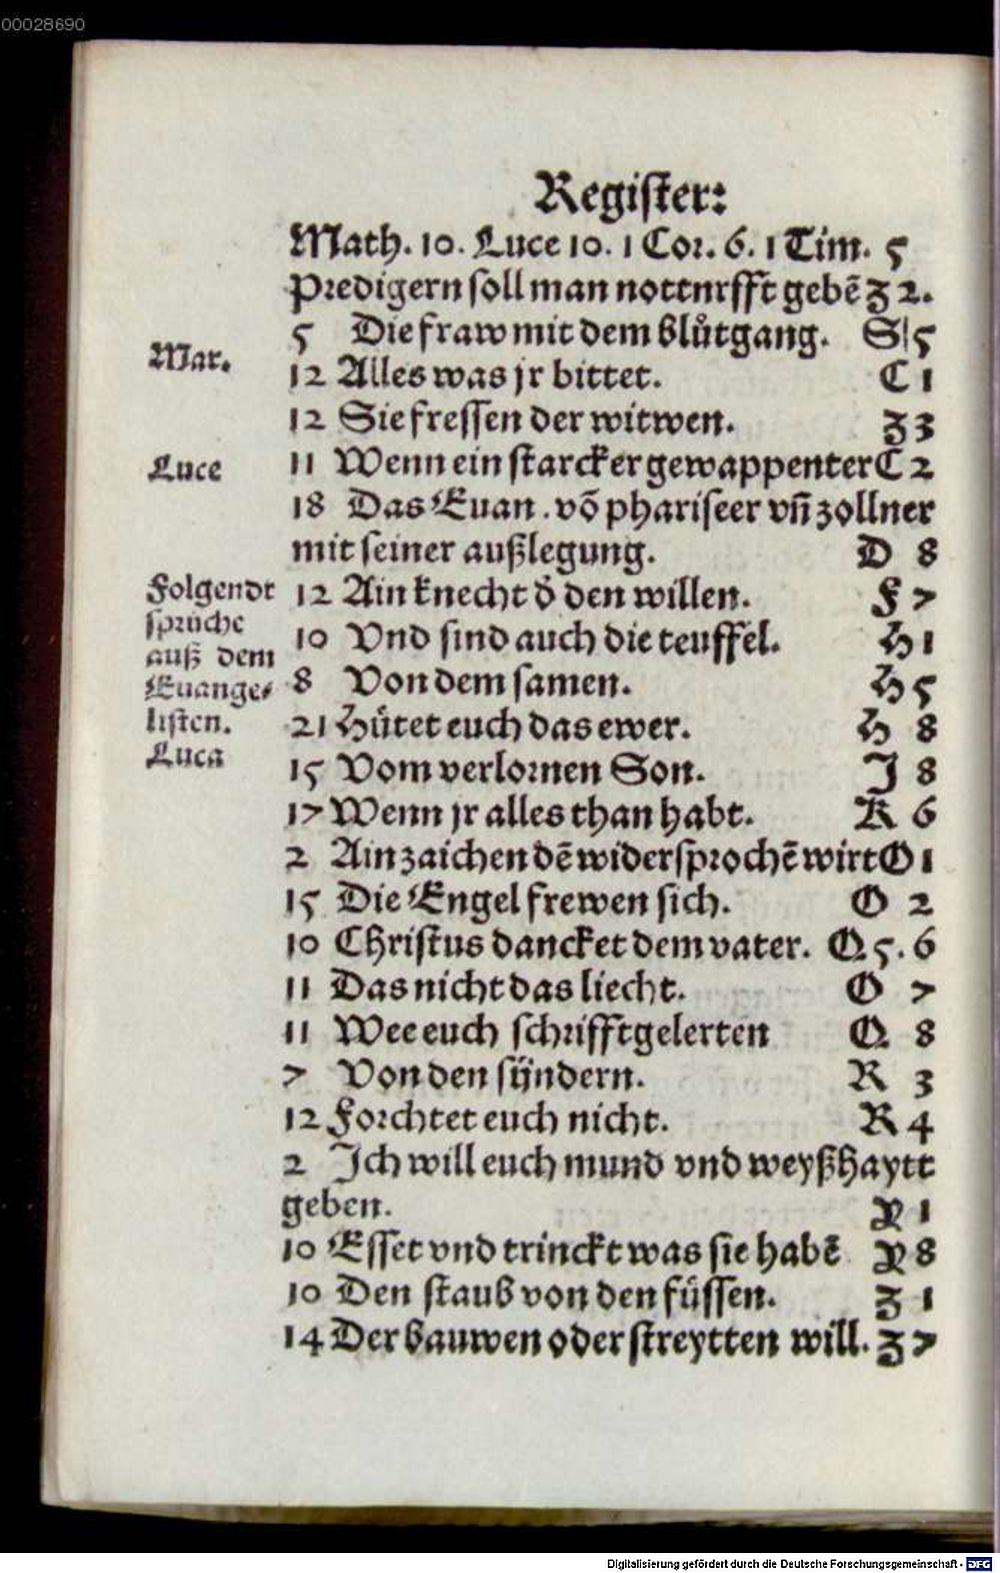 00028690
Register:
Math. 10. Luce 10. 1 Cor. 6. 1 Tim. 5
Predigern soll man nottnrfft gebē Z 2.
5 Die fraw mit dem blůtgang. S 5
Mar.
12 Alles was jr bittet. C 1
12 Sie fressen der witwen. Z 3
Luce 11 Wenn ein starcker gewappenter C 2
18 Das Euan. vō phariseer vñ zollner
mit seiner außlegung. D 8
Folgendt 12 Ain knecht d̄ den willen. F 7
sprüche
auß dem 10 Vnd sind auch die teuffel. H 1
Euange- 8 Von dem samen. H 5
listen. 21 Hütet euch das ewer. H 8
Luca 15 Vom verlornen Son. J 8
17 Wenn jr alles than habt. K 6
2 Ain zaichen dē widersprochē wirt O 1
15 Die Engel frewen sich. O 2
10 Christus dancket dem vater. Q 5. 6
11 Das nicht das liecht. O 7
11 Wee euch schrifftgelerten Q 8
7 Von den sündern. R 3
12 Forchtet euch nicht. R 4
2 Ich will euch mund vnd weyßhaytt
geben. Y 1
10 Esset vnd trinckt was sie habē Y 8
10 Den staub von den füssen. Z 1
14 Der bauwen oder streytten will. Z 7
Digitalisierung gefördert durch die Deutsche Forschungsgemeinschaft - DFG